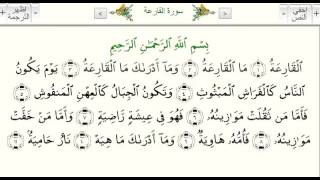 أخفي النص
سورة القارعة
إظهار الترجمة
بِسْمِ ٱللَّهِ ٱلرَّحْمَٰنِ ٱلرَّحِيمِ
ٱلْقَارِعَةُ ۝١ مَا ٱلْقَارِعَةُ ۝٢ وَمَآ أَدْرَىٰكَ مَا ٱلْقَارِعَةُ ۝٣ يَوْمَ يَكُونُ
ٱلنَّاسُ كَٱلْفَرَاشِ ٱلْمَبْثُوثِ ۝٤ وَتَكُونُ ٱلْجِبَالُ كَٱلْعِهْنِ ٱلْمَنفُوشِ ۝٥
فَأَمَّا مَن ثَقُلَتْ مَوَٰزِينُهُۥ ۝٦ فَهُوَ فِى عِيشَةٍ رَّاضِيَةٍ ۝٧ وَأَمَّا مَنْ خَفَّتْ
مَوَٰزِينُهُۥ ۝٨ فَأُمُّهُۥ هَاوِيَةٌ ۝٩ وَمَآ أَدْرَىٰكَ مَا هِيَهْ ۝١٠ نَارٌ حَامِيَةٌۢ ۝١١